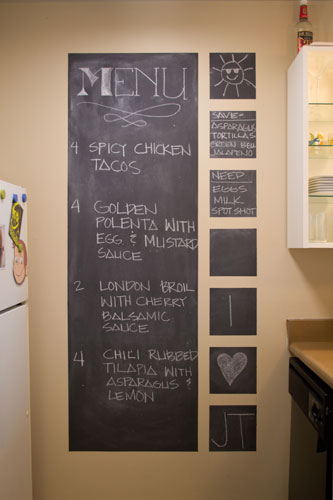 MENU
4 SPICY CHICKEN
TACOS
4 GOLDEN
POLENTA WITH
EGG & MUSTARD
SAUCE
2 LONDON BROIL
WITH CHERRY
BALSAMIC
SAUCE
4 CHILI RUBBED
TILAPIA WITH
ASPARAGUS &
LEMON
SAVE-
ASPARAGUS
TORTILLAS
GREEN BELL
JALAPENO
NEED
EGGS
MILK
SPOT SHOT
I
JT